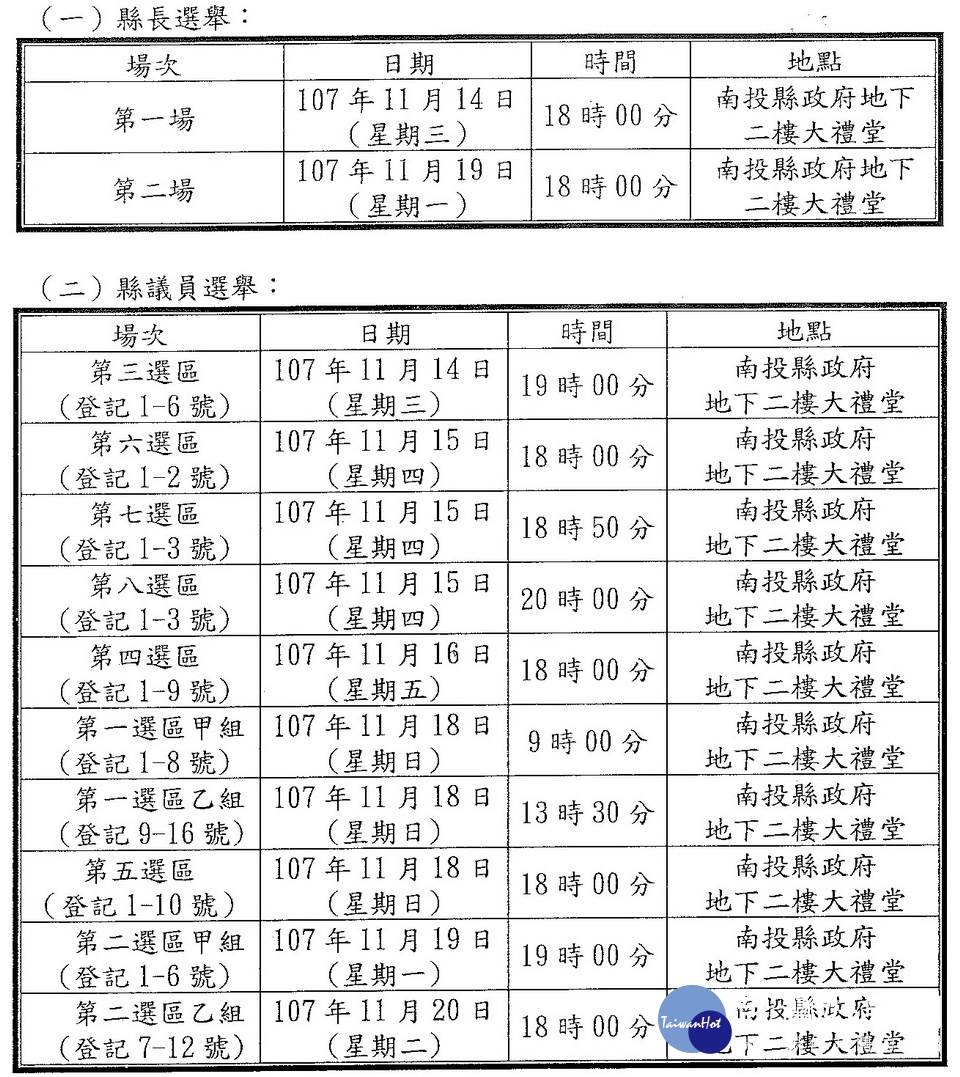 （一）縣長選舉：
場次 日期 時間 地點
第一場 107年11月14日（星期三） 18時00分 南投縣政府地下二樓大禮堂
第二場 107年11月19日（星期一） 18時00分 南投縣政府地下二樓大禮堂
（二）縣議員選舉：
場次 日期 時間 地點
第三選區（登記1-6號） 107年11月14日（星期三） 19時00分 南投縣政府地下二樓大禮堂
第六選區（登記1-2號） 107年11月15日（星期四） 18時00分 南投縣政府地下二樓大禮堂
第七選區（登記1-3號） 107年11月15日（星期四） 18時50分 南投縣政府地下二樓大禮堂
第八選區（登記1-3號） 107年11月15日（星期四） 20時00分 南投縣政府地下二樓大禮堂
第四選區（登記1-9號） 107年11月16日（星期五） 18時00分 南投縣政府地下二樓大禮堂
第一選區甲組（登記1-8號） 107年11月18日（星期日） 9時00分 南投縣政府地下二樓大禮堂
第一選區乙組（登記9-16號） 107年11月18日（星期日） 13時30分 南投縣政府地下二樓大禮堂
第五選區（登記1-10號） 107年11月18日（星期日） 18時00分 南投縣政府地下二樓大禮堂
第二選區甲組（登記1-6號） 107年11月19日（星期一） 19時00分 南投縣政府地下二樓大禮堂
第二選區乙組（登記7-12號） 107年11月20日（星期二） 18時00分 南投縣政府地下二樓大禮堂
TaiwanHot